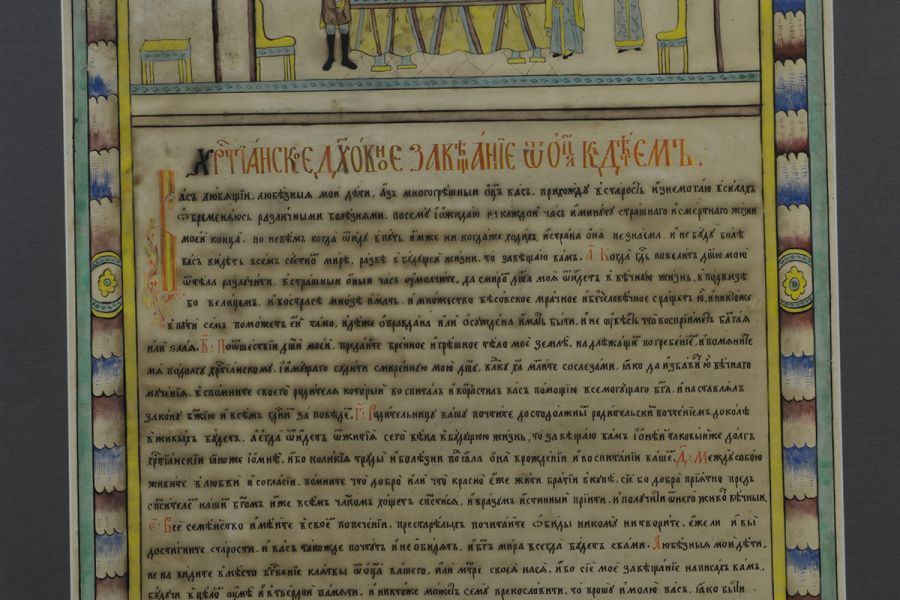 хрⷭ҇тїа́нское дх҃о́вное завѣща́нїе ѿ оц҃а къ дѣ́темъ.
Васъ любѧщїи, любе́зныѧ мои дѣти, азъ многогрѣшныи ѻц҃ъ васъ, прихождꙋ въ старость и изнемогаю въ силахъ
ѻбременѧюсь различными болѣзнѧми, посемꙋ и ѻжидаю на каждои часъ и минꙋтꙋ страшнаго и смертнаго жизни
моеи конца. но невѣмъ когда ѿидꙋ въ пꙋть имже ни когдаже ходихъ, и страна ѻна незнаема. и не бꙋдꙋ болѣ
васъ видѣть всемъ сꙋетномъ мирѣ, развѣ въ бꙋдꙋщеи жизни. то завещаю вамъ. а҃ Когда гдⷭ҇ь повелитъ дш҃ꙋ мою
ѿ тѣла разлꙋчити. въ страшныи ѻныи часъ ꙋмолчите, да смирѡⷩ҇ дш҃а моѧ ѿидетъ въ вѣчнꙋю жизнь, въ подвизѣ
бо велицемъ, и во страсѣ мнозѣ имать, и множество бѣсовское мрачное и безчеловѣчное срѧщетъ ю, и никоиже
въ пꙋти семъ поможетъ еи тамо, идѣже ѡправдана или ѡсꙋждена имать быти, и не ѿвѣсть что воспрїиметъ бл҃гаѧ
или злаѧ. в҃ По ѿшествїи дш҃и моеи, предаите бренное и грѣшное тѣло мое землѣ, надлежащи погребенїеⷨ, и помѧните
мѧ по долгꙋ хрⷭ҇тїанскомꙋ, и имꙋщаго сꙋдити смиреннꙋю мою дш҃ꙋ, бг҃а х҃а молите со слезами, ꙗко да избавиⷮ ю вѣчнаго
мꙋченїѧ, вспомните своего родителѧ которыи воспиталъ и возрастилъ васъ помощїю всемогꙋщаго бг҃а, и наставлѧлъ
законꙋ бж҃їю и всѣмъ гдⷭ҇нимъ заповѣдемъ. г҃ Родительницꙋ вашꙋ почтите достодолжны родительскиⷨ почтенїемъ, доколѣ
въ живыхъ бꙋдетъ. а егда ѿидетъ ѿ житїѧ сего вѣка въ бꙋдꙋщꙋю жизнь, то завѣщаю вамъ и ѻнеи таковыиже долгъ
хрⷭ҇тїански ꙗкоже и ѻ мнѣ, ибо коликїѧ трꙋды и болѣзни подъѧла ѻна врожденїи и воспитанїи вашеⷨ. д҃ Междꙋ собою
живите в любви и согласїи, помните что добро или что красно еже жити братїи вкꙋпѣ, сїе бо добро прїѧтно предъ
спⷭ҇ителемъ нашиⷨ бг҃омъ иже всѣмъ чл҃комъ хощетъ спⷭ҇тисѧ, и вразꙋмъ истинныи прїити, и полꙋчити ѿ него животъ вѣчныи.
е҃ Все семеиство имѣите въ своеⷨ попеченїи, престарелыхъ почитаите ѻбиды никомꙋ не творите, ежели и вы
достигните старости, и васъ такожде почтꙋтъ и не ѻбидѧтъ, и бг҃ъ мира всегда бꙋдетъ съ вами. Любезныѧ мои дѣти,
не на видите вмѣсто бл҃гвенїе клѧтвы ѿ ѻца вашего, или мт҃ре своеѧ насѧ, ибо сїе мое завѣщанїе написахъ вамъ,
бꙋдꙋчи въ цѣлоⷨ ꙋмѣ и въ твердои памѧти, и никтоже можетъ семꙋ прекословити, то прошꙋ и молю васъ, ꙗко были-